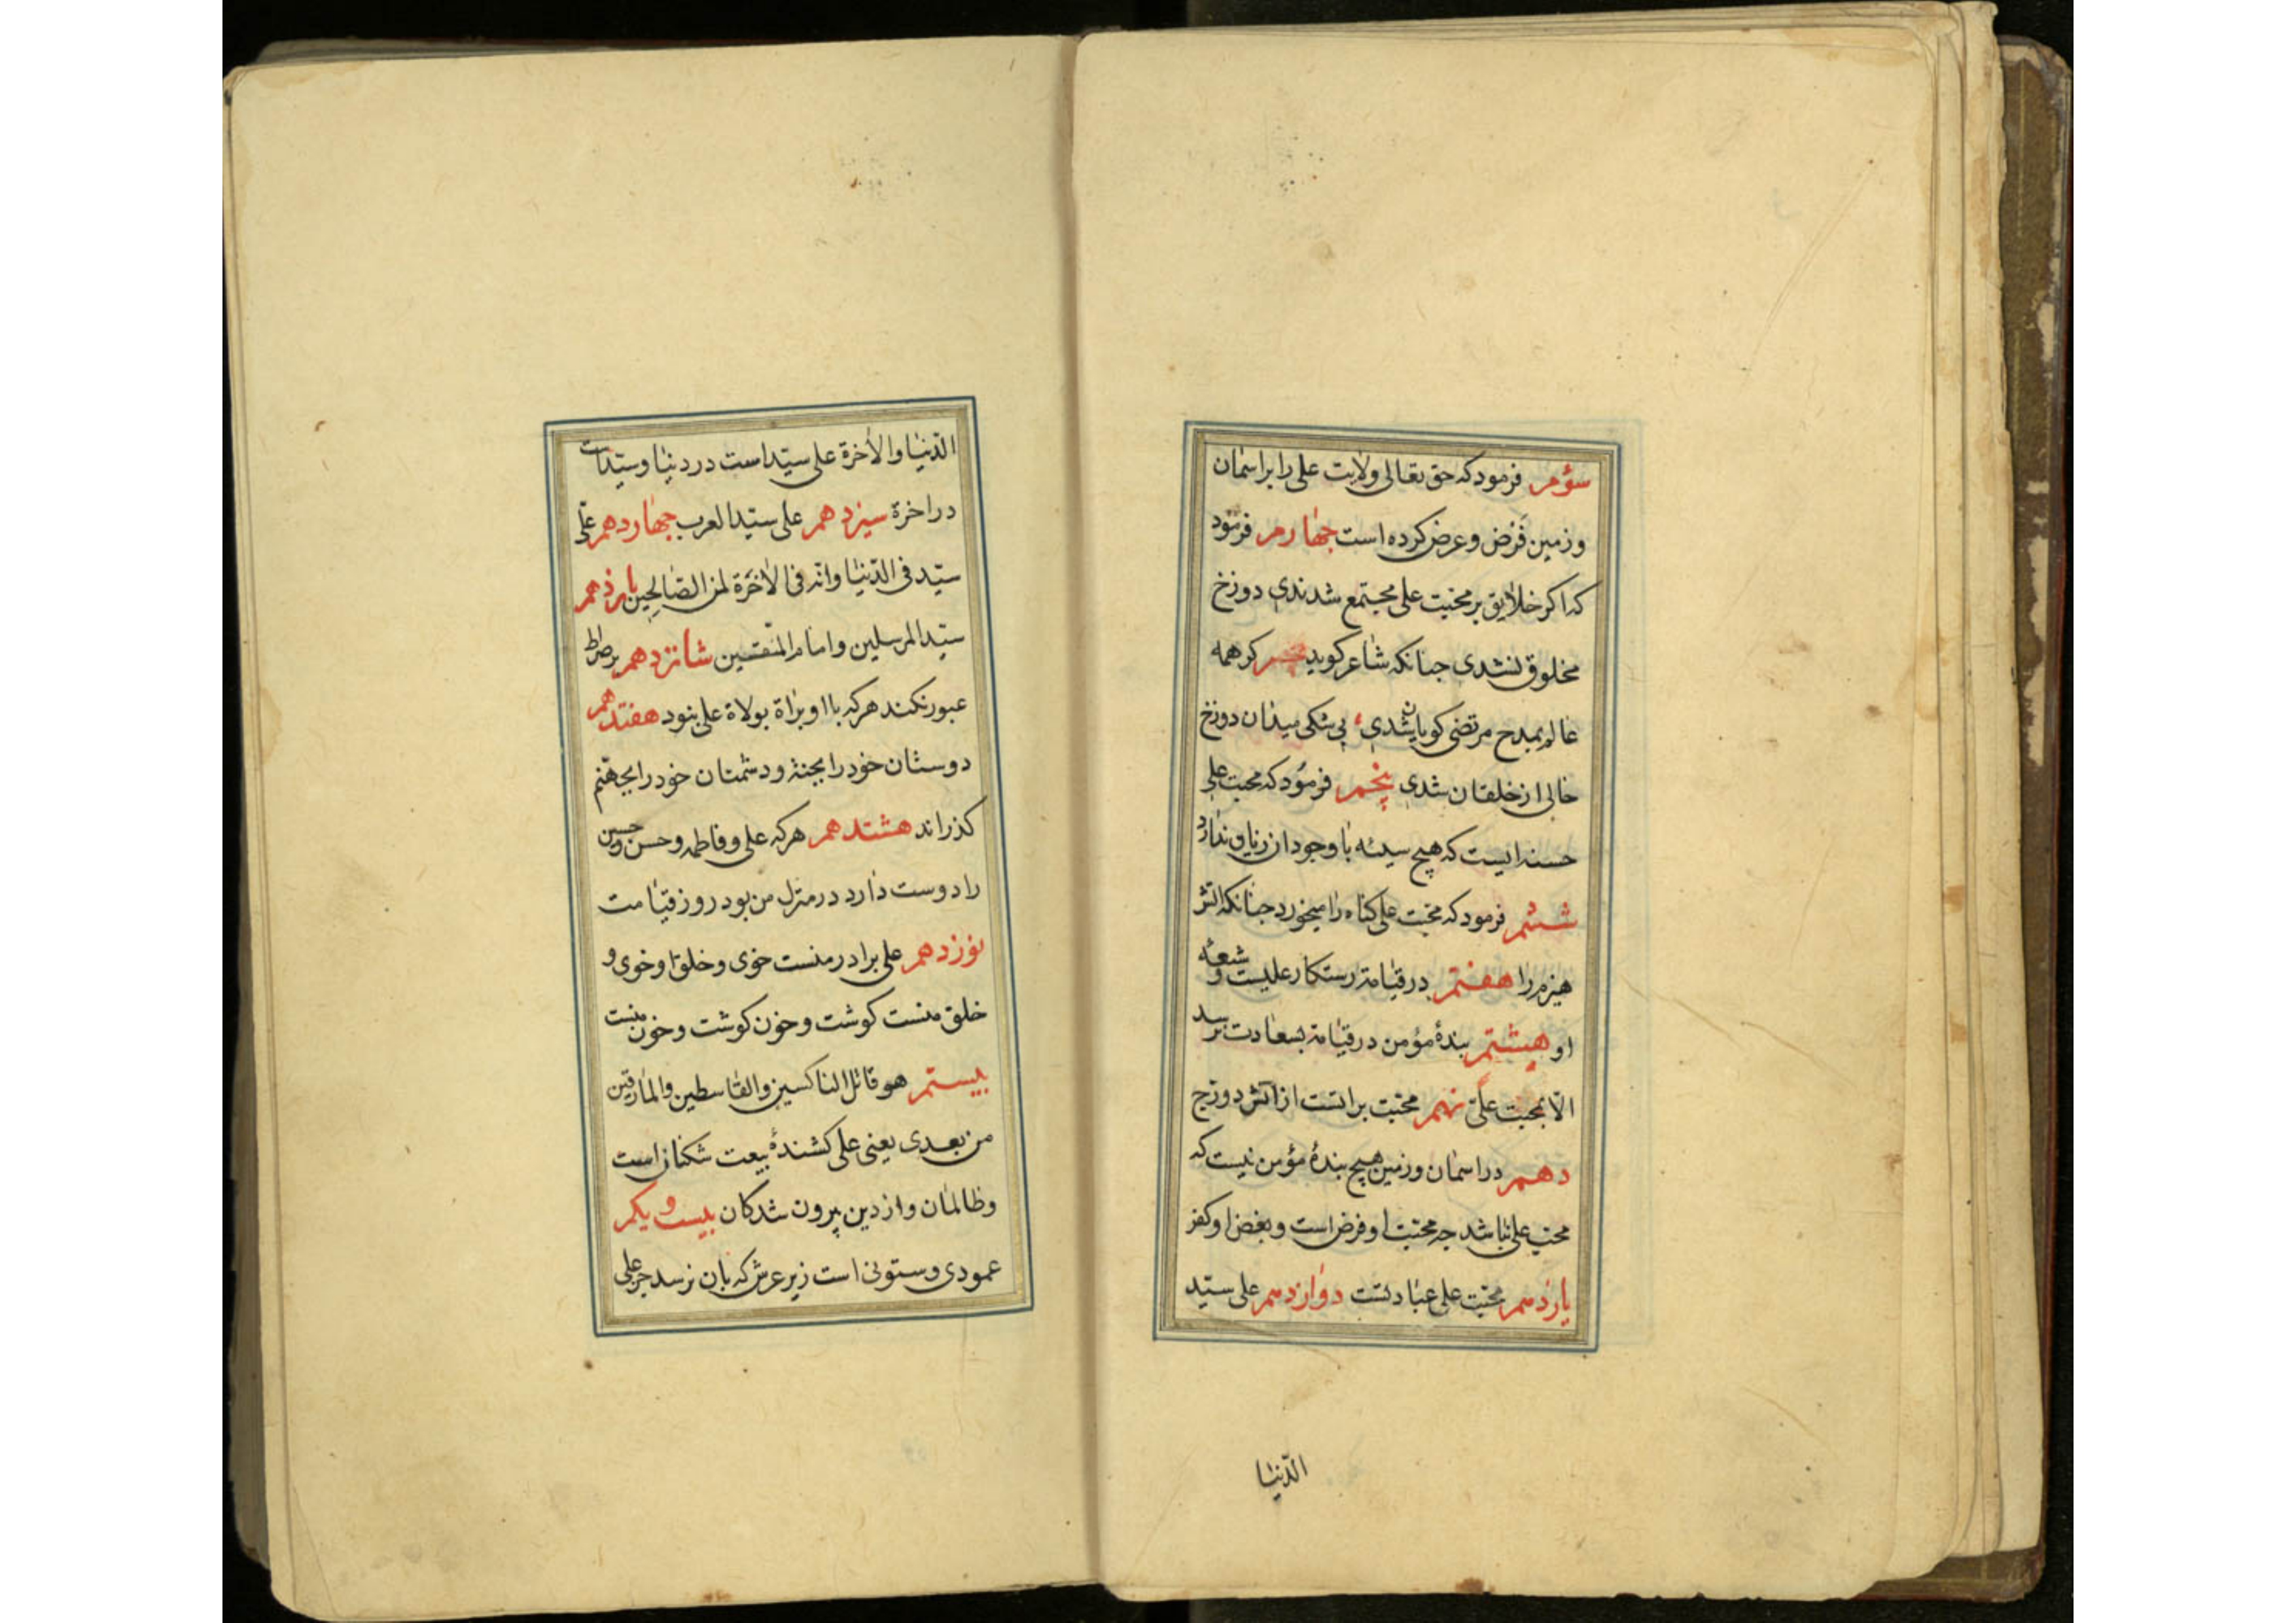 سؤم فرمود که حق تعالی ولایت علی را بر اسمان
و زمین فرض و عرض کرده است جهارم فرمود
که اکر خلایق بر محبت علی مجتمع شدندی دوزخ
مخلوق نشدی جنانکه شاعر کوید کر همه
عالم بمدح مرتضی کویان شدی بی شکی میدان دوزخ
خالی از خلقان شدی پنجم فرمود که محبت علی
حسنه ایست که هیچ سیئه با وجود ان زیان ندارد
ششم فرمود که محبت علی کناه را میخورد جنانکه اتش
هیزم را هفتم در قیامة رستکار علیست و شیعه
او هیشتم بندهٔ مؤمن در قیامة بسعادت نرسد
الّا بمحبت علی نهم محبت براتست از آتش دوزخ
دهم در اسمان و زمین هیچ بندهٔ مؤمن نیست که
محب علی نباشد جه محبت او فرض است و بغض او کفر
یازدهم محبت علی عبادتست دوازدهم علی سیّد
الدّنیا
الدّنیا والأخرة علی سیّد است در دنیا و سیّد است
در اخرة سیزدهم علی سیّد العرب جهاردهم علی
سیّد فی الدّنیا وانه فی الأخرة لمن الصالحین پانزدهم
سیّد المرسلین وامام المتقین شانزدهم بر صراط
عبور نکند هر که با او براة بولاة علی نبود هفتدهم
دوستان خود را بجنة و دشمنان خود را بجهنم
کذراند هشتدهم هر که علی و فاطمه و حسن و حسین
را دوست دارد در منزل من بود روز قیامت
نوزدهم علی برادر منست خوی و خلق او خوی و
خلق منست کوشت و خون کوشت و خون منست
بیستم هو قاتل الناکسین والقاسطین والمارقین
من بعدی یعنی علی کشندهٔ بیعت شکنان است
و ظالمان و از دین بیرون شدکان بیست و یکم
عمودی و ستونی است زیر عرش که بان نرسد جز علی